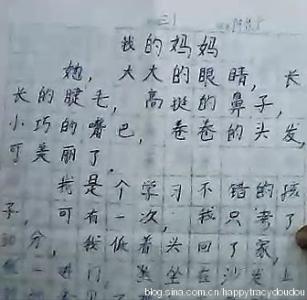 三1
我的妈妈
她，大大的眼睛，长
长的睫毛，高挺的鼻子，
小巧的嘴巴，卷卷的头发，
可美丽了。
我是个学习不错的孩
子，可有一次，我只考了
分，我低着头回了家，
一进门，坐在沙发上
blog.sina.com.cn/happytracydoudou